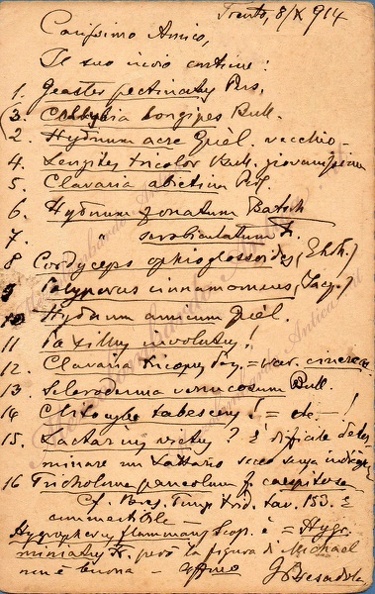 Trento, 8/X 914
Carissimo Amico,
Il suo invio contiene:
1. Geaster pectinatus Pers.
(3. Collybia longipes Bull.
2. Hydnum acre Quèl. vecchio
4. Lenzites tricolor Bull. giovanissima
5. Clavaria abietina Pers.
6. Hydnum zonatum Batsch
7. " scrobiculatum Fr.
8 Cordyceps ophioglossoides (Ehrh.)
9 Polyporus cinnamomeus (Jacq.)
10 Hydnum amicum Quèl.
11 Paxillus involutus!
12. Clavaria Kropu = var. cinerea
13 Scleroderma verrucosum Bull
14 Clitocybe tabescens! = !
15. Lactarius vietus? è difficile deter-
minare un Lattario secco senza
16 Tricholoma panaeolum f. caespitosa
Cf. Bres. Fung. Trid. tav. 153. è
commestibile —
Hygrophorus flammans Scop. è = Hygr.
miniatus Fr. però la figura di Michael
non è buona — affmo G. Bresadola